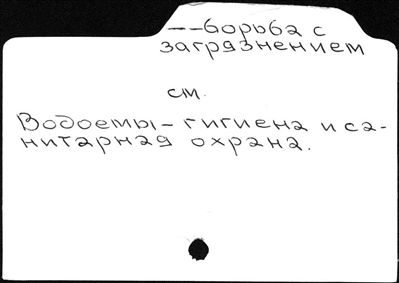 ——борьба с
загрязнением
см.
Водоемы – гигиена и са-
нитарная охрана.